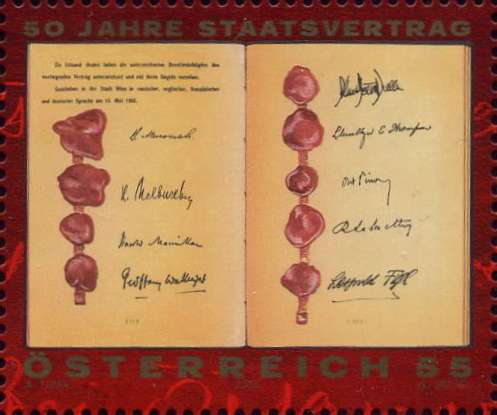 50 JAHRE STAATSVERTRAG
Zu Urkund dessen haben die unterzeichneten Bevollmächtigten den
vorliegenden Vertrag unterzeichnet und mit ihren Siegeln versehen.
Geschehen in der Stadt Wien in russischer, englischer, französischer
und deutscher Sprache am 15. Mai 1955.
Harold Macmillan
Geoffrey Wallinger
Llewellyn E Thompson
Ant Pinay
Leopold Figl
ÖSTERREICH 55